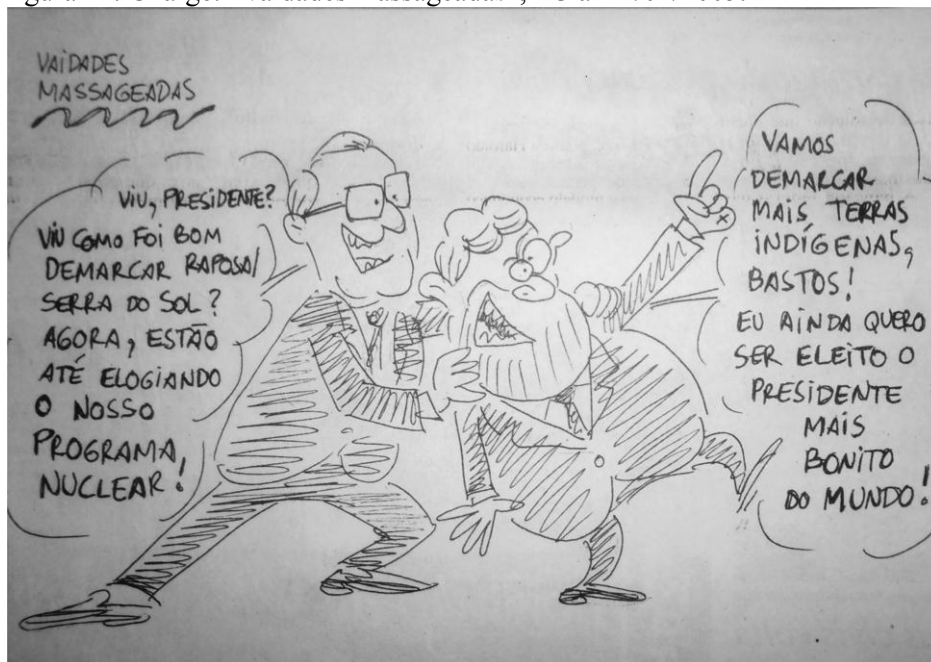 VAIDADES
MASSAGEADAS
VIU, PRESIDENTE?
VIU COMO FOI BOM
DEMARCAR RAPOSA/
SERRA DO SOL?
AGORA, ESTÃO
ATÉ ELOGIANDO
O NOSSO
PROGRAMA
NUCLEAR!
VAMOS
DEMARCAR
MAIS TERRAS
INDÍGENAS,
BASTOS!
EU AINDA QUERO
SER ELEITO O
PRESIDENTE
MAIS
BONITO
DO MUNDO!